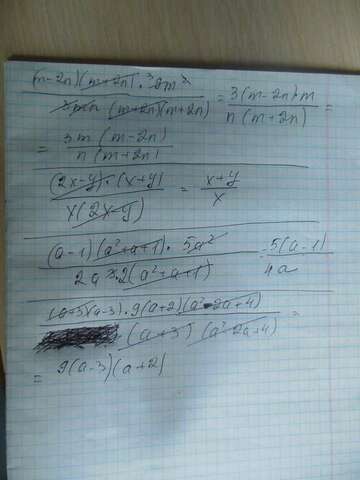 (m-2n)(m+2n) · ³9m²
3mn (m+2n)(m+2n) = 3(m-2n)·m / n(m+2n) =
= 3m(m-2n) / n(m+2n)
(2x-y)·(x+y) / x(2x-y) = x+y / x
(a-1)(a²+a+1)·5a² / 2a³·2(a²+a+1) = 5(a-1) / 4a
(a+3)(a-3)·9(a+2)(a²-2a+4) / (a+3)(a²-2a+4) =
= 9(a-3)(a+2)